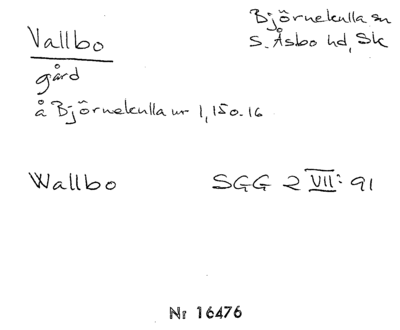 Vallbo
Björnekulla sn
S. Åsbo hd, Sk
gård
å Björnekulla nr 1, 150.16
Wallbo
SGG 2 VII: 91
Nr 16476